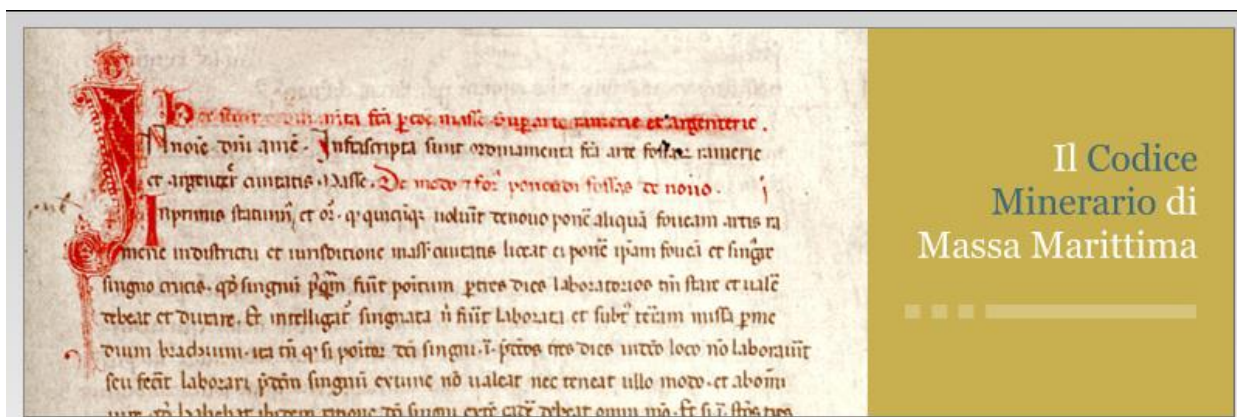 Hec sunt ordinamenta fca p coe masse sup arte ramerie et argenterie.
In noie dni amen. Infrascripta sunt ordinamenta fca arte fossar ramerie
et argenter civitatis Masse. De modo et for ponendi foveas de novo.
Inprimis statuim et or. q quicuq voluit de novo pone aliqua foveam artis ra
merie in districtu et iurisditione mass civitatis liceat ei pone ipam fovea et singar
singno crucis. qd singnu fuit positum p tres dies laboratorios tn stare et vale
debeat et durare. Et intelligat singnata n fuit laborata et subt terram missa p me
dium brachium. ita tn q si positor dci singni. i. pdcos tres dies in dco loco no laboravit
seu fecit laborari pdcm singnu extunc no valeat nec teneat ullo modo. et ab omi
Il Codice
Minerario di
Massa Marittima